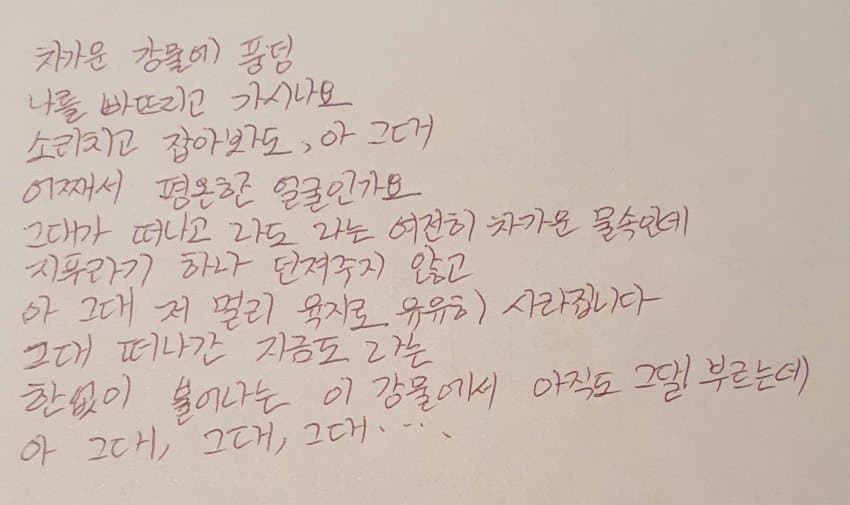 차가운 강물에 풍덩
나를 빠뜨리고 가시나요
소리치고 잡아봐도, 아 그대
어째서 평온한 얼굴인가요
그대가 떠나고 나도 나는 여전히 차가운 물속인데
지푸라기 하나 던져주지 않고
아 그대 저 멀리 육지로 유유히 사라집니다
그대 떠나간 지금도 나는
한없이 불어나는 이 강물에서 아직도 그댈 부르는데
아 그대, 그대, 그대....